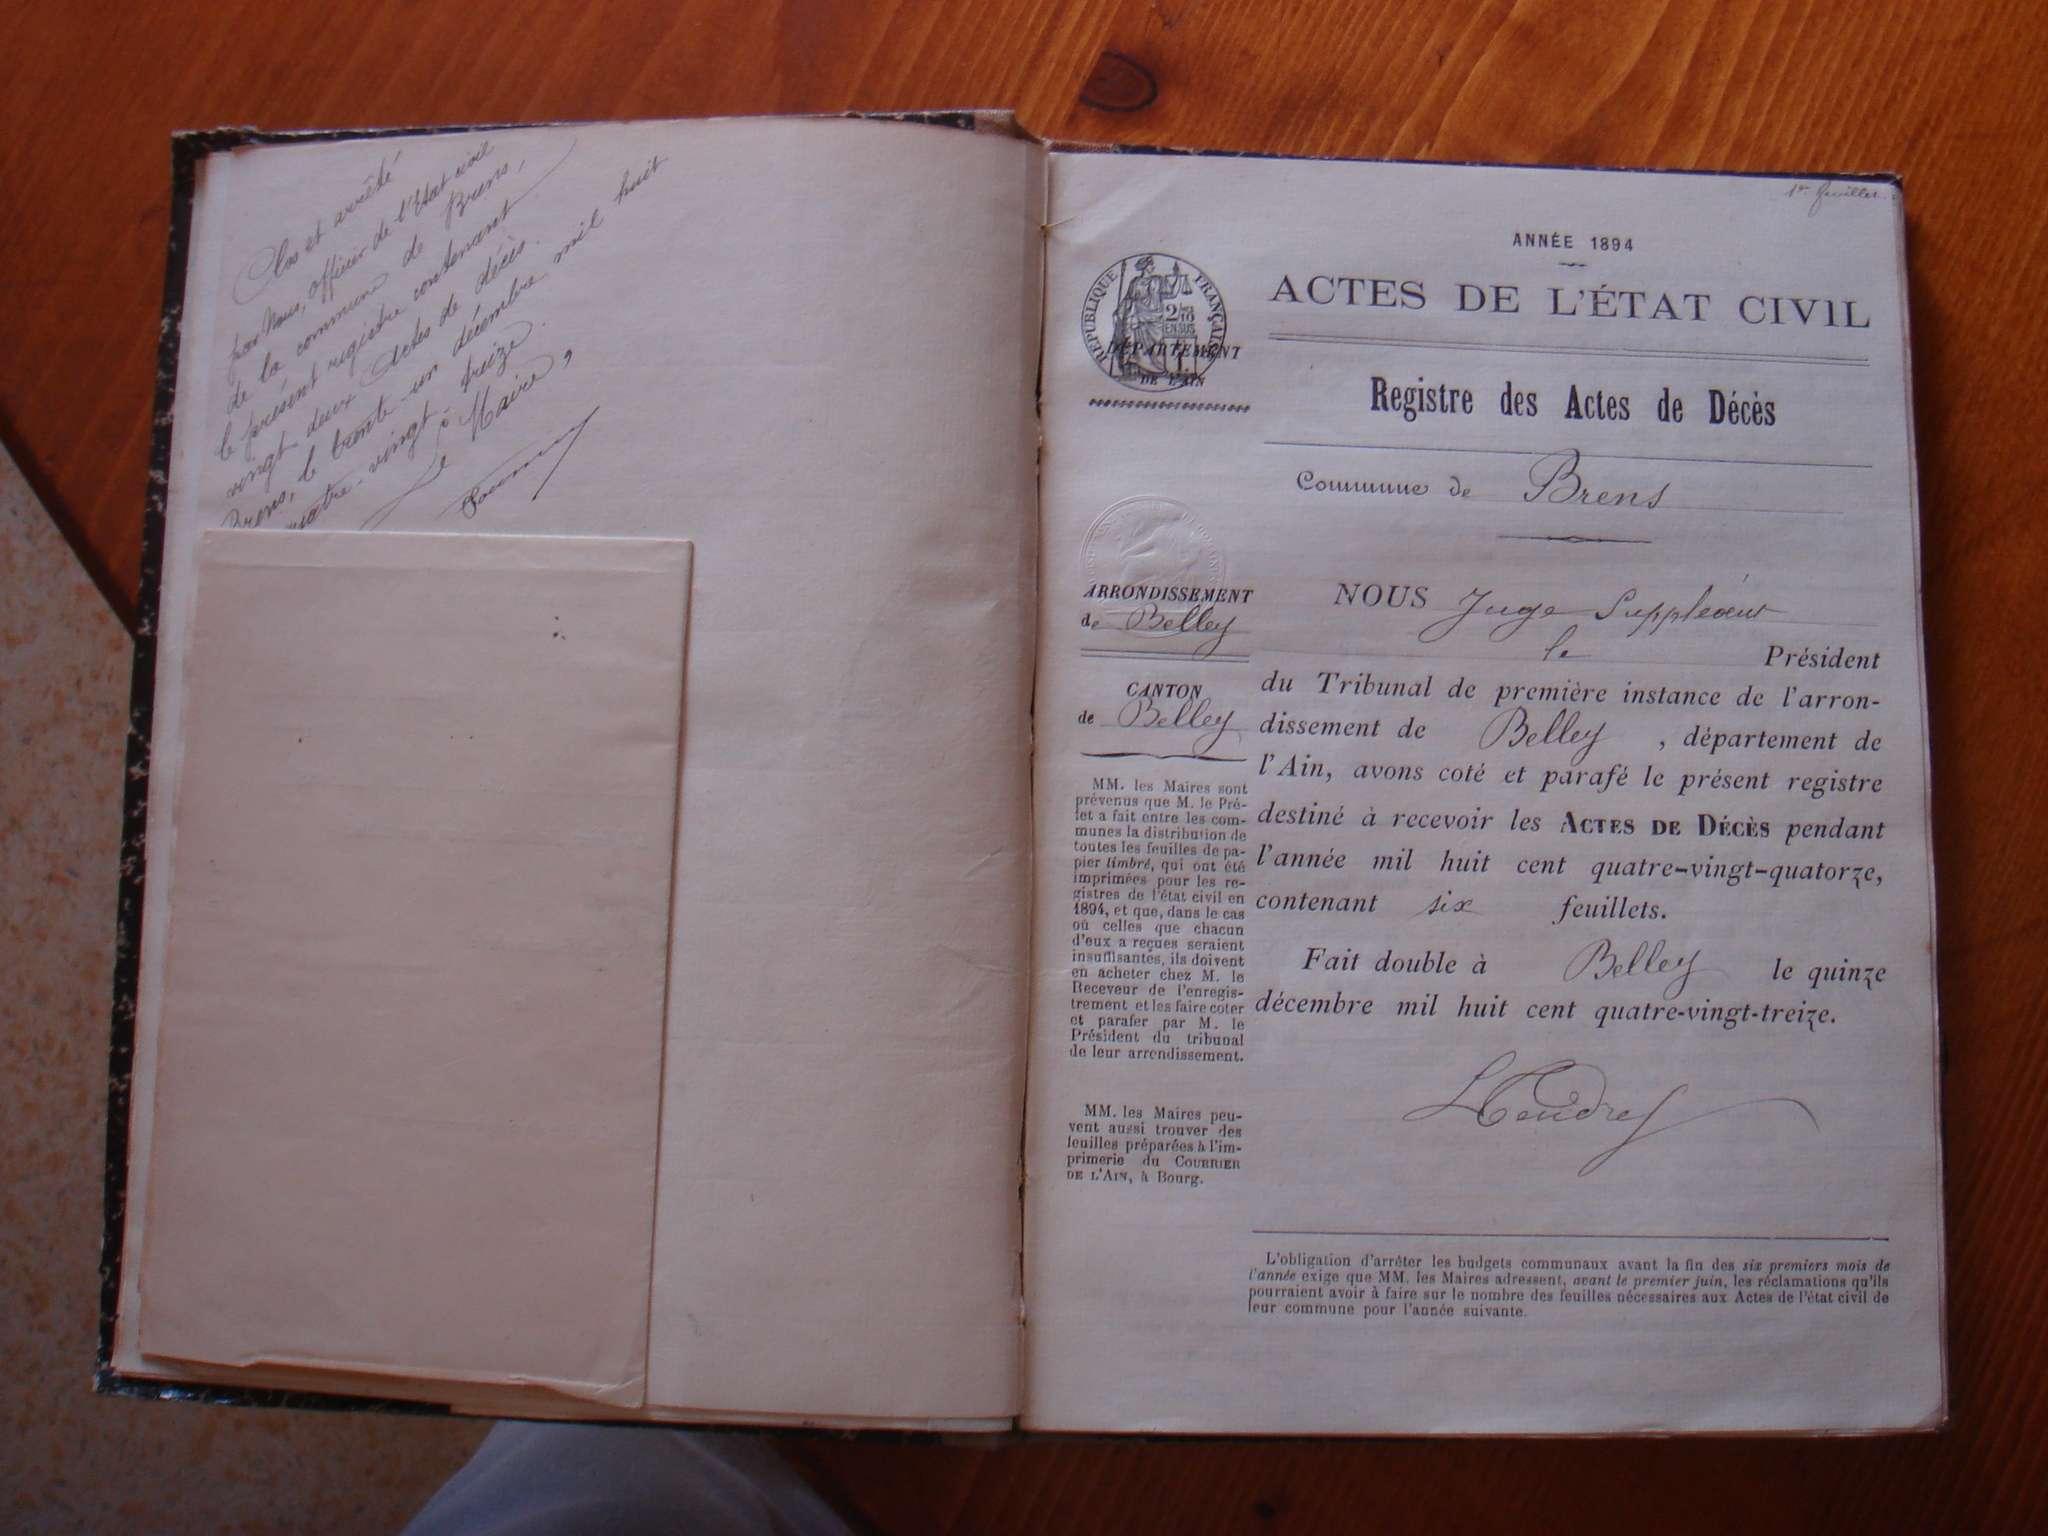 Clos et arrêté
par Nous, officier de l'Etat civil
de la commune de Brens,
le présent registre contenant
vingt deux actes de décès.
Brens, le trente-un décembre mil huit
quatre-vingt-treize.
Le Maire,
1er feuillet
ANNÉE 1894
ACTES DE L'ÉTAT CIVIL
Registre des Actes de Décès
Commune de Brens
RÉPUBLIQUE FRANÇAISE
DÉPARTEMENT
DE L'AIN
ARRONDISSEMENT
de Belley
CANTON
de Belley
MM. les Maires sont
prévenus que M. le Pré-
fet a fait entre les com-
munes la distribution de
toutes les feuilles de pa-
pier timbré, qui ont été
imprimées pour les re-
gistres de l'état civil en
1894, et que, dans le cas
où celles que chacun
d'eux a reçues seraient
insuffisantes, ils doivent
en acheter chez M. le
Receveur de l'enregis-
trement et les faire coter
et parafer par M. le
Président du tribunal
de leur arrondissement.
MM. les Maires peu-
vent aussi trouver des
feuilles préparées à l'im-
primerie du COURRIER
DE L'AIN, à Bourg.
NOUS Juge Suppléant
le Président
du Tribunal de première instance de l'arron-
dissement de Belley, département de
l'Ain, avons coté et parafé le présent registre
destiné à recevoir les ACTES DE DÉCÈS pendant
l'année mil huit cent quatre-vingt-quatorze,
contenant six feuillets.
Fait double à Belley le quinze
décembre mil huit cent quatre-vingt-treize.
L'obligation d'arrêter les budgets communaux avant la fin des six premiers mois de
l'année exige que MM. les Maires adressent, avant le premier juin, les réclamations qu'ils
pourraient avoir à faire sur le nombre des feuilles nécessaires aux Actes de l'état civil de
leur commune pour l'année suivante.